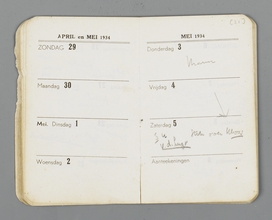 APRIL en MEI 1934
ZONDAG 29
Maandag 30
Mei. Dinsdag 1
Woensdag 2
MEI 1934
Donderdag 3
Vrijdag 4
Zaterdag 5
Aanteekeningen